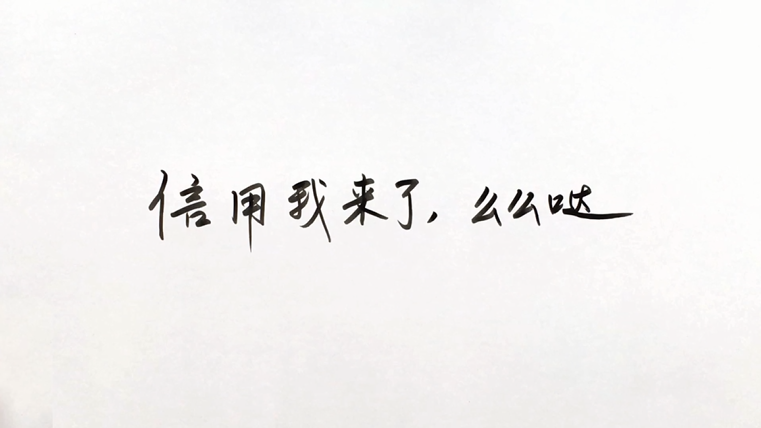 信用我来了，么么哒